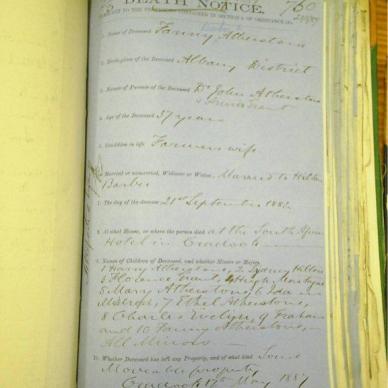 DEATH NOTICE.
760
1. Name of Deceased Fanny Atherstone
2. Birthplace of the Deceased Albany District
3. Names of Parents of the Deceased Dr John Atherstone
4. Age of the Deceased 37 years
5. Condition in life Farmers wife
6. Married or unmarried, Widower or Widow, Married to Hilton
Barber
7. The day of the decease 21st September 1882
8. At what House, or where the person died at the South African
Hotel in Cradock
9. Names of Children of Deceased, and whether Minors or Majors
1 Harry Atherstone, 2 Sydney Hilton
3 Florence 4 Hugh
5 Mary Atherstone 6
7 Ethel Atherstone,
8 Charles Evelyn, 9 Graham
and 10 Fanny Atherstone,
All Minors
10. Whether Deceased has left any Property, and of what kind Some
Moveable property
Cradock 17th May 1887